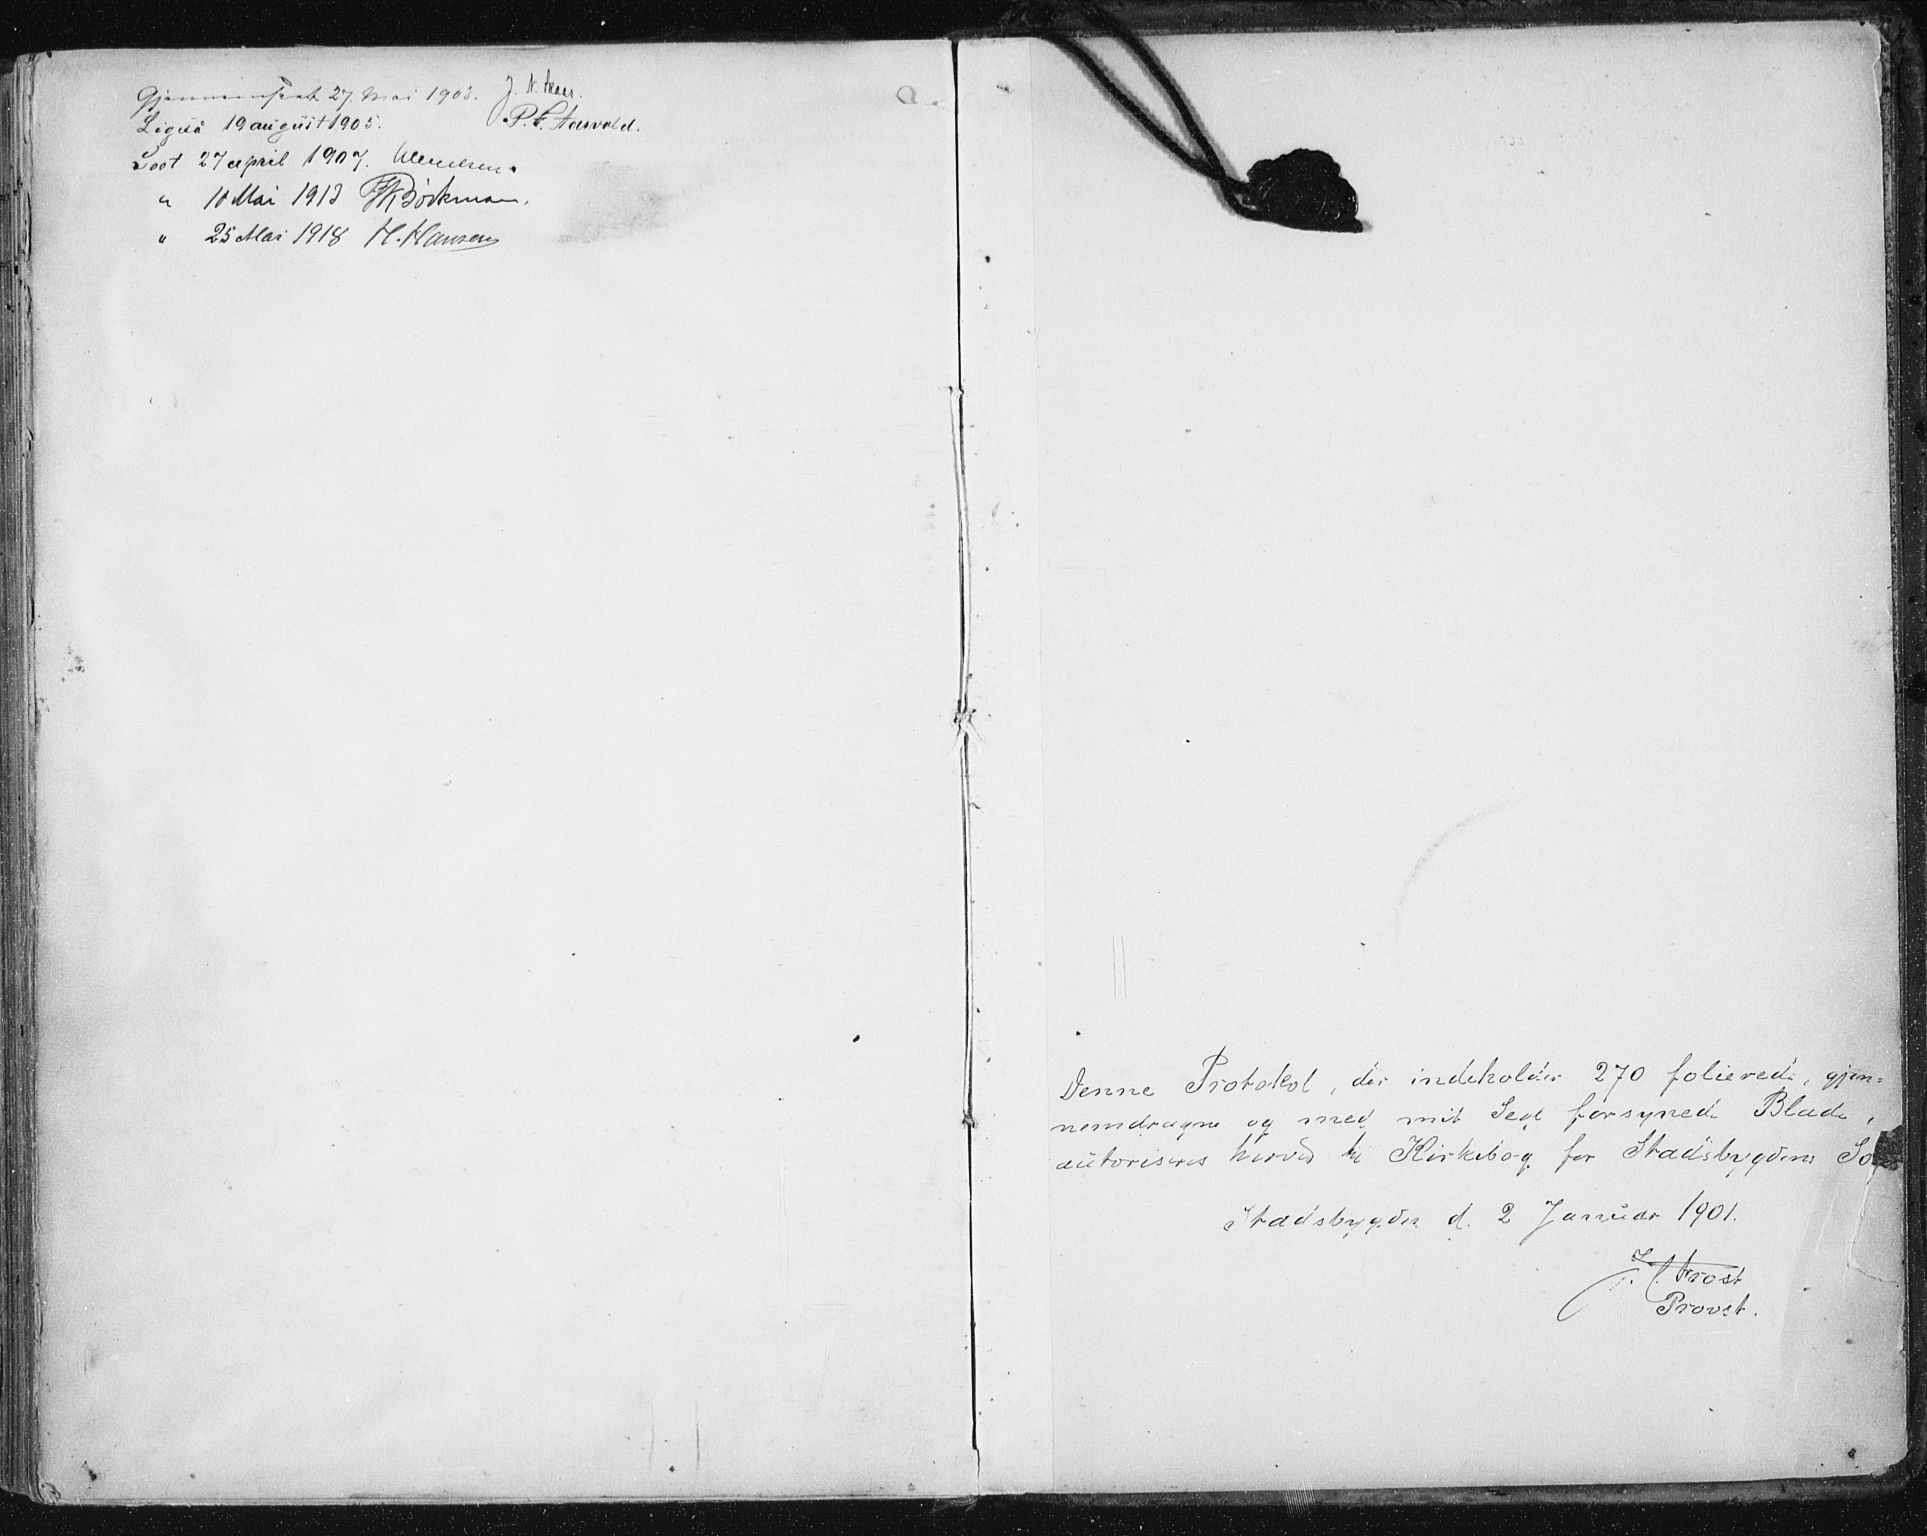 Gjennemseet 27. Mai 1903. J. N.
Ligesaa 19 august 1905. P. F. Aasvald.
Seet 27 april 1907.
" 10 Mai 1913 Bøckman.
" 25 Mai 1918 H. Hansen
Denne Protokol, der indeholder 270 folierede, gjen=
nemdragne og med mit Segl forsynede Blade,
autoriseres herved til Kirkebog for Stadsbygdens Sogn
Stadsbygden d. 2 Januar 1901.
Frost
Provst.